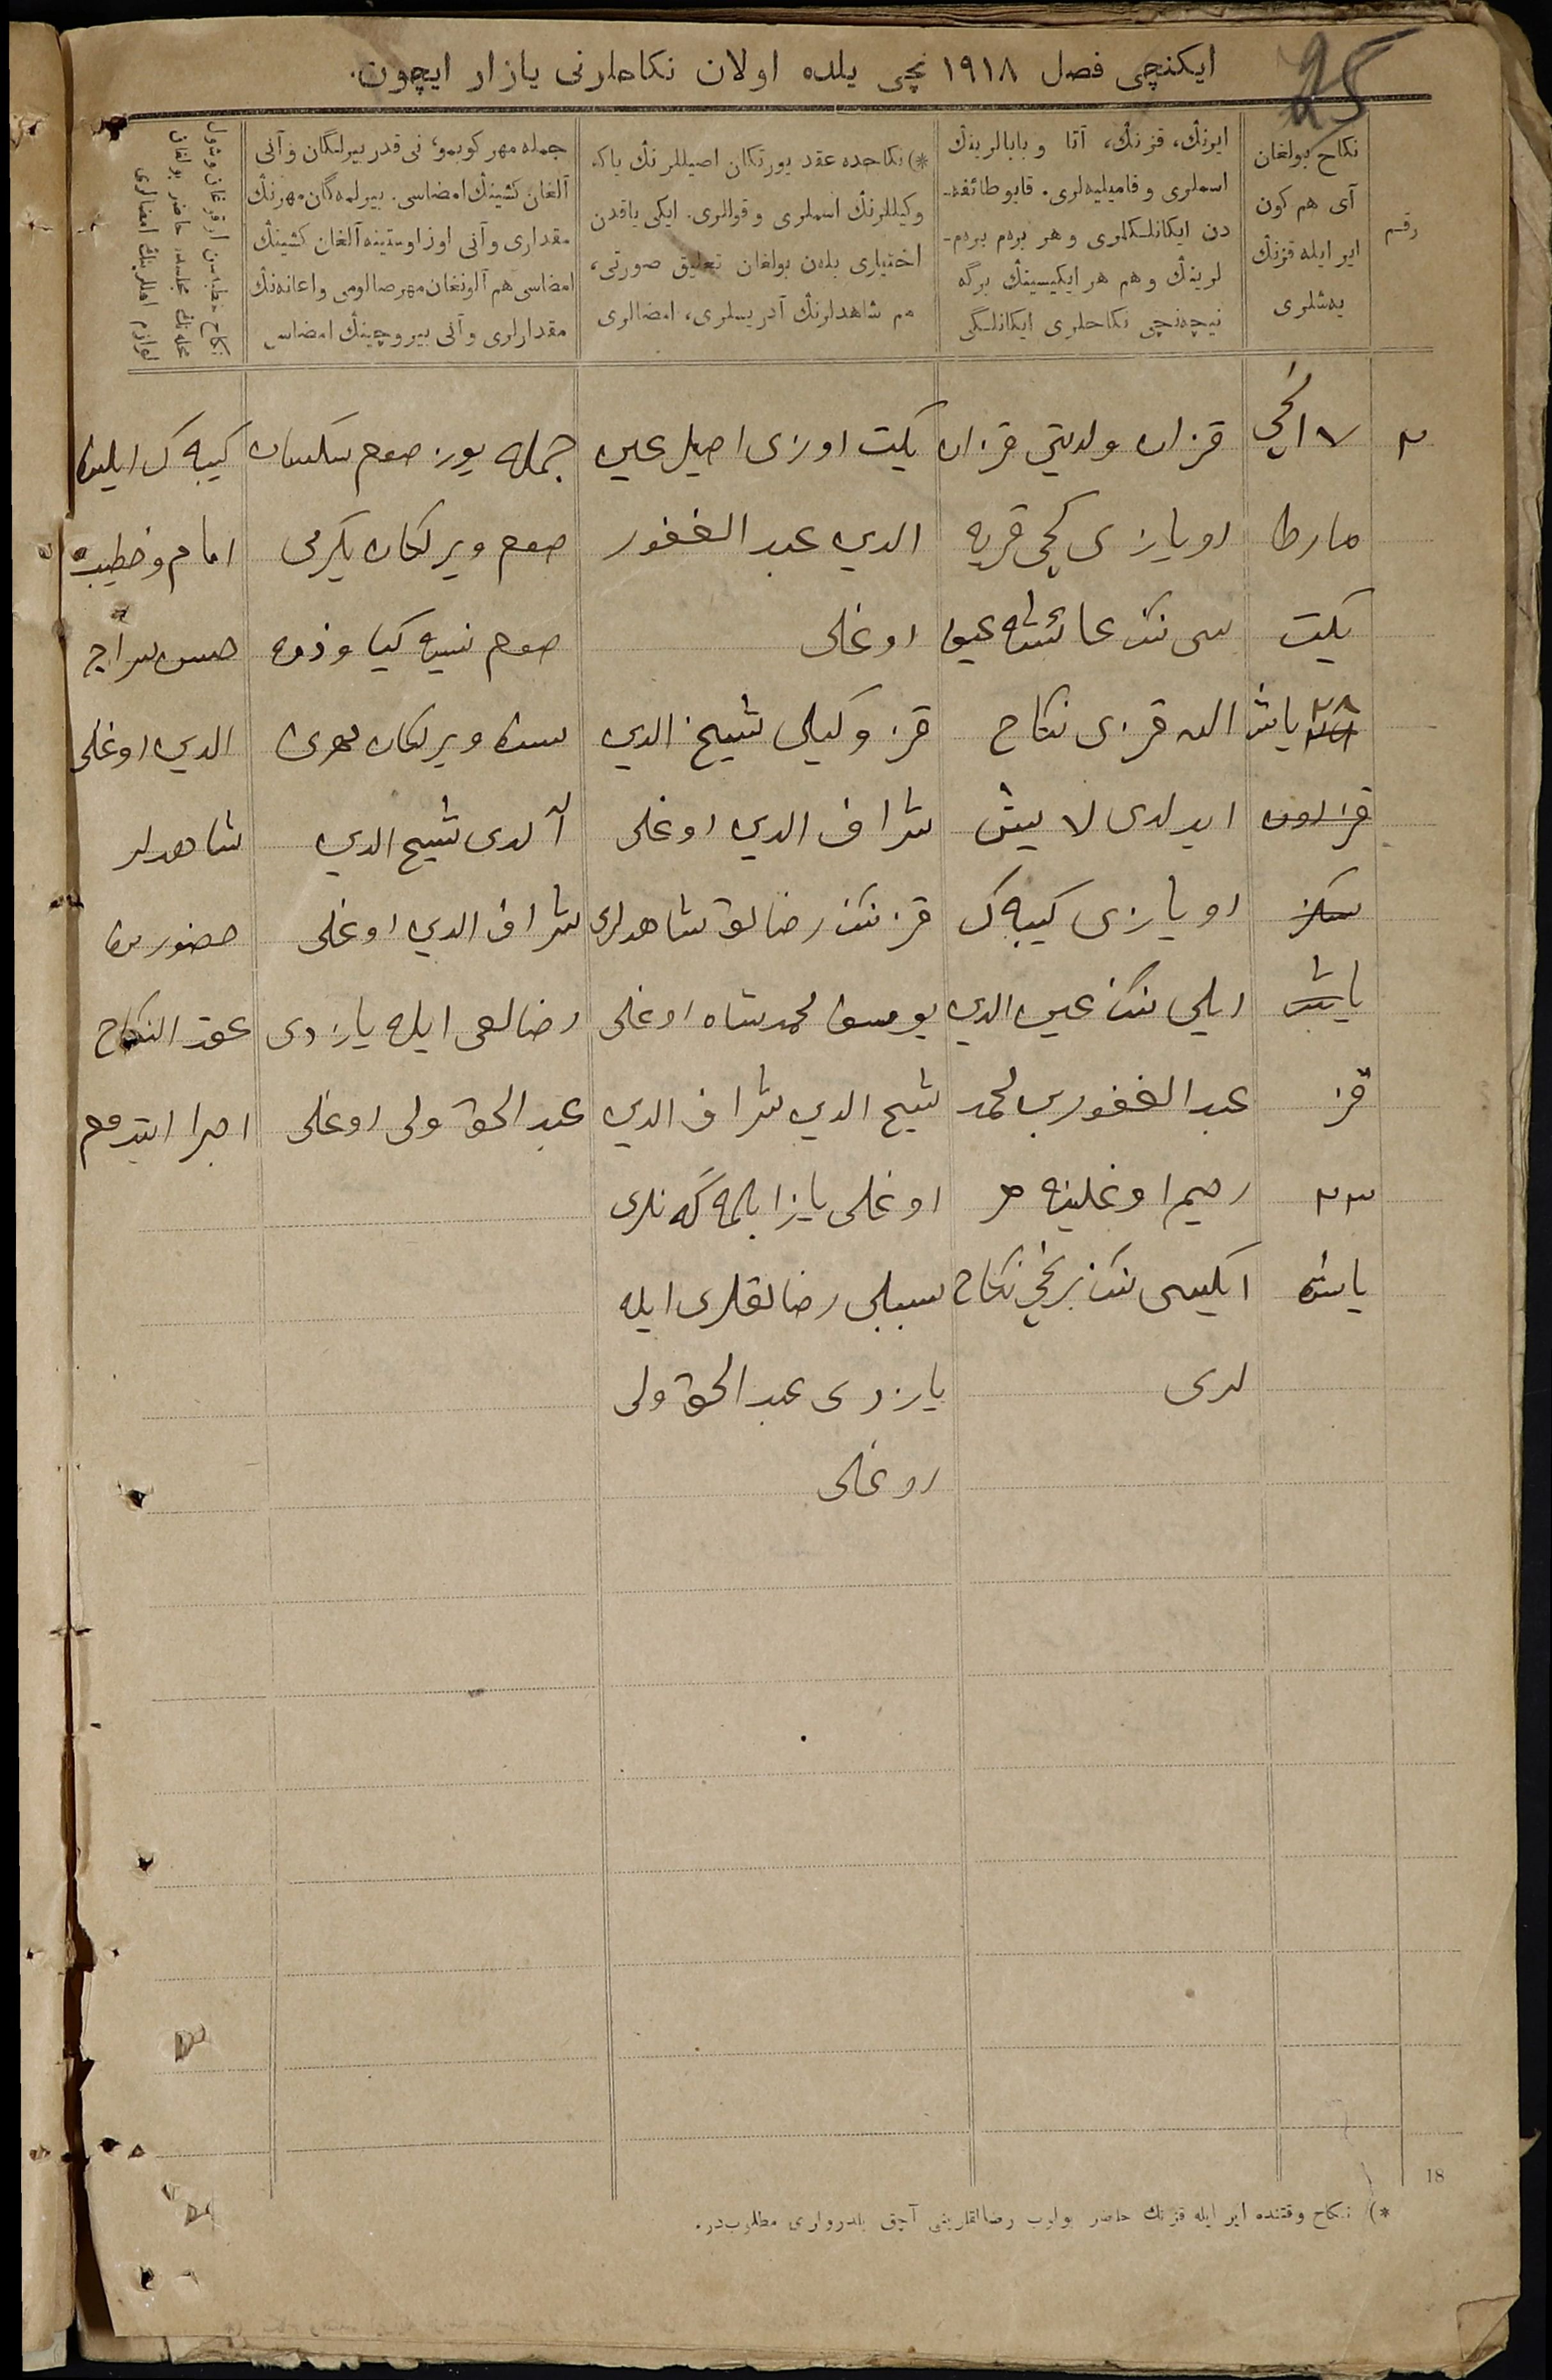 25
ایکنچی فصل ١٩١٨ نچی یلده اولان نکاحلرنی یازار ایچون.
رقم
نکاح بولغان
آی هم کون
ایر ایله قزنڭ
یه‌شلری
ایرنڭ، قزنڭ، آتا و بابالرینڭ
اسملری و فامیلیه‌لری. قایو طائفه‌-
دن ایکانلکلری و هر بردم بردم-
لرینڭ و هم هر ایکیسینڭ برگه
نیچه‌نچی نکاحلری ایکانلگی
*) نکاحده عقد یورتکان اصیللرنڭ یاکه
وکیللرنڭ اسملری و قوللری. ایکی یاقدن
اختیاری بلەن بولغان تعلیق صورتی،
هم شاهدلرنڭ آدریسلری، امضالری
جمله مهر کوبمو، نی قدر بیرلگان و آنی
آلغان کشینڭ امضاسی. بیرلمه‌گان مهرنڭ
مقداری و آنی اوز اوستینه آلغان کشینڭ
امضاسی هم آلونغان مهر صالومی و اعانه‌نڭ
مقدارلری و آنی بیروچینڭ امضاسی
٣
٧ انچی
مارطا
یکت
٢٨ یاش
قز اون
سکز
یاش
قز
٢٣
یاشده
قزان ولایتی قزان
اویازی کچی قریه
سی ننک عائشه عین
الله قزی نکاح
ایدلدی لایش
اویازی کیبه‌ک
ایلی ننک عین الدین
عبد الغفور بن محمد
رحیم اوغلینه هر
ایکیسی ننک برنچی نکاح
لری
یکت اوزی اصیل عین
الدین عبد الغفور
اوغلی
قز وکیلی شیخ الدین
شراف الدین اوغلی
قز ننک رضالق شاهدلری
یوسف محمدشاه اوغلی
شیخ الدین شراف الدین
اوغلی یازا بلمه‌گه‌نلری
سببلی رضالقلری ایله
یازدی عبد الحق ولی
اوغلی
جمله یوز صوم سکسان
صوم ویرلکان یکرمی
صوم نسیه کیا وذمه
سنده ویرلکان مهرن
آلدی شیخ الدین
شراف الدین اوغلی
رضالغی ایله یازدی
عبد الحق ولی اوغلی
کیبه‌ک ایلینه
امام و خطیب
حسن سراج
الدین اوغلی
شاهدلر
حضورنده
عقد النکاح
اجرا ایتدوم
18
*) نکاح وقتنده ایر ایله قزنڭ حاضر بولوب رضالقلرینی آچق بلدرولری مطلوبدر.